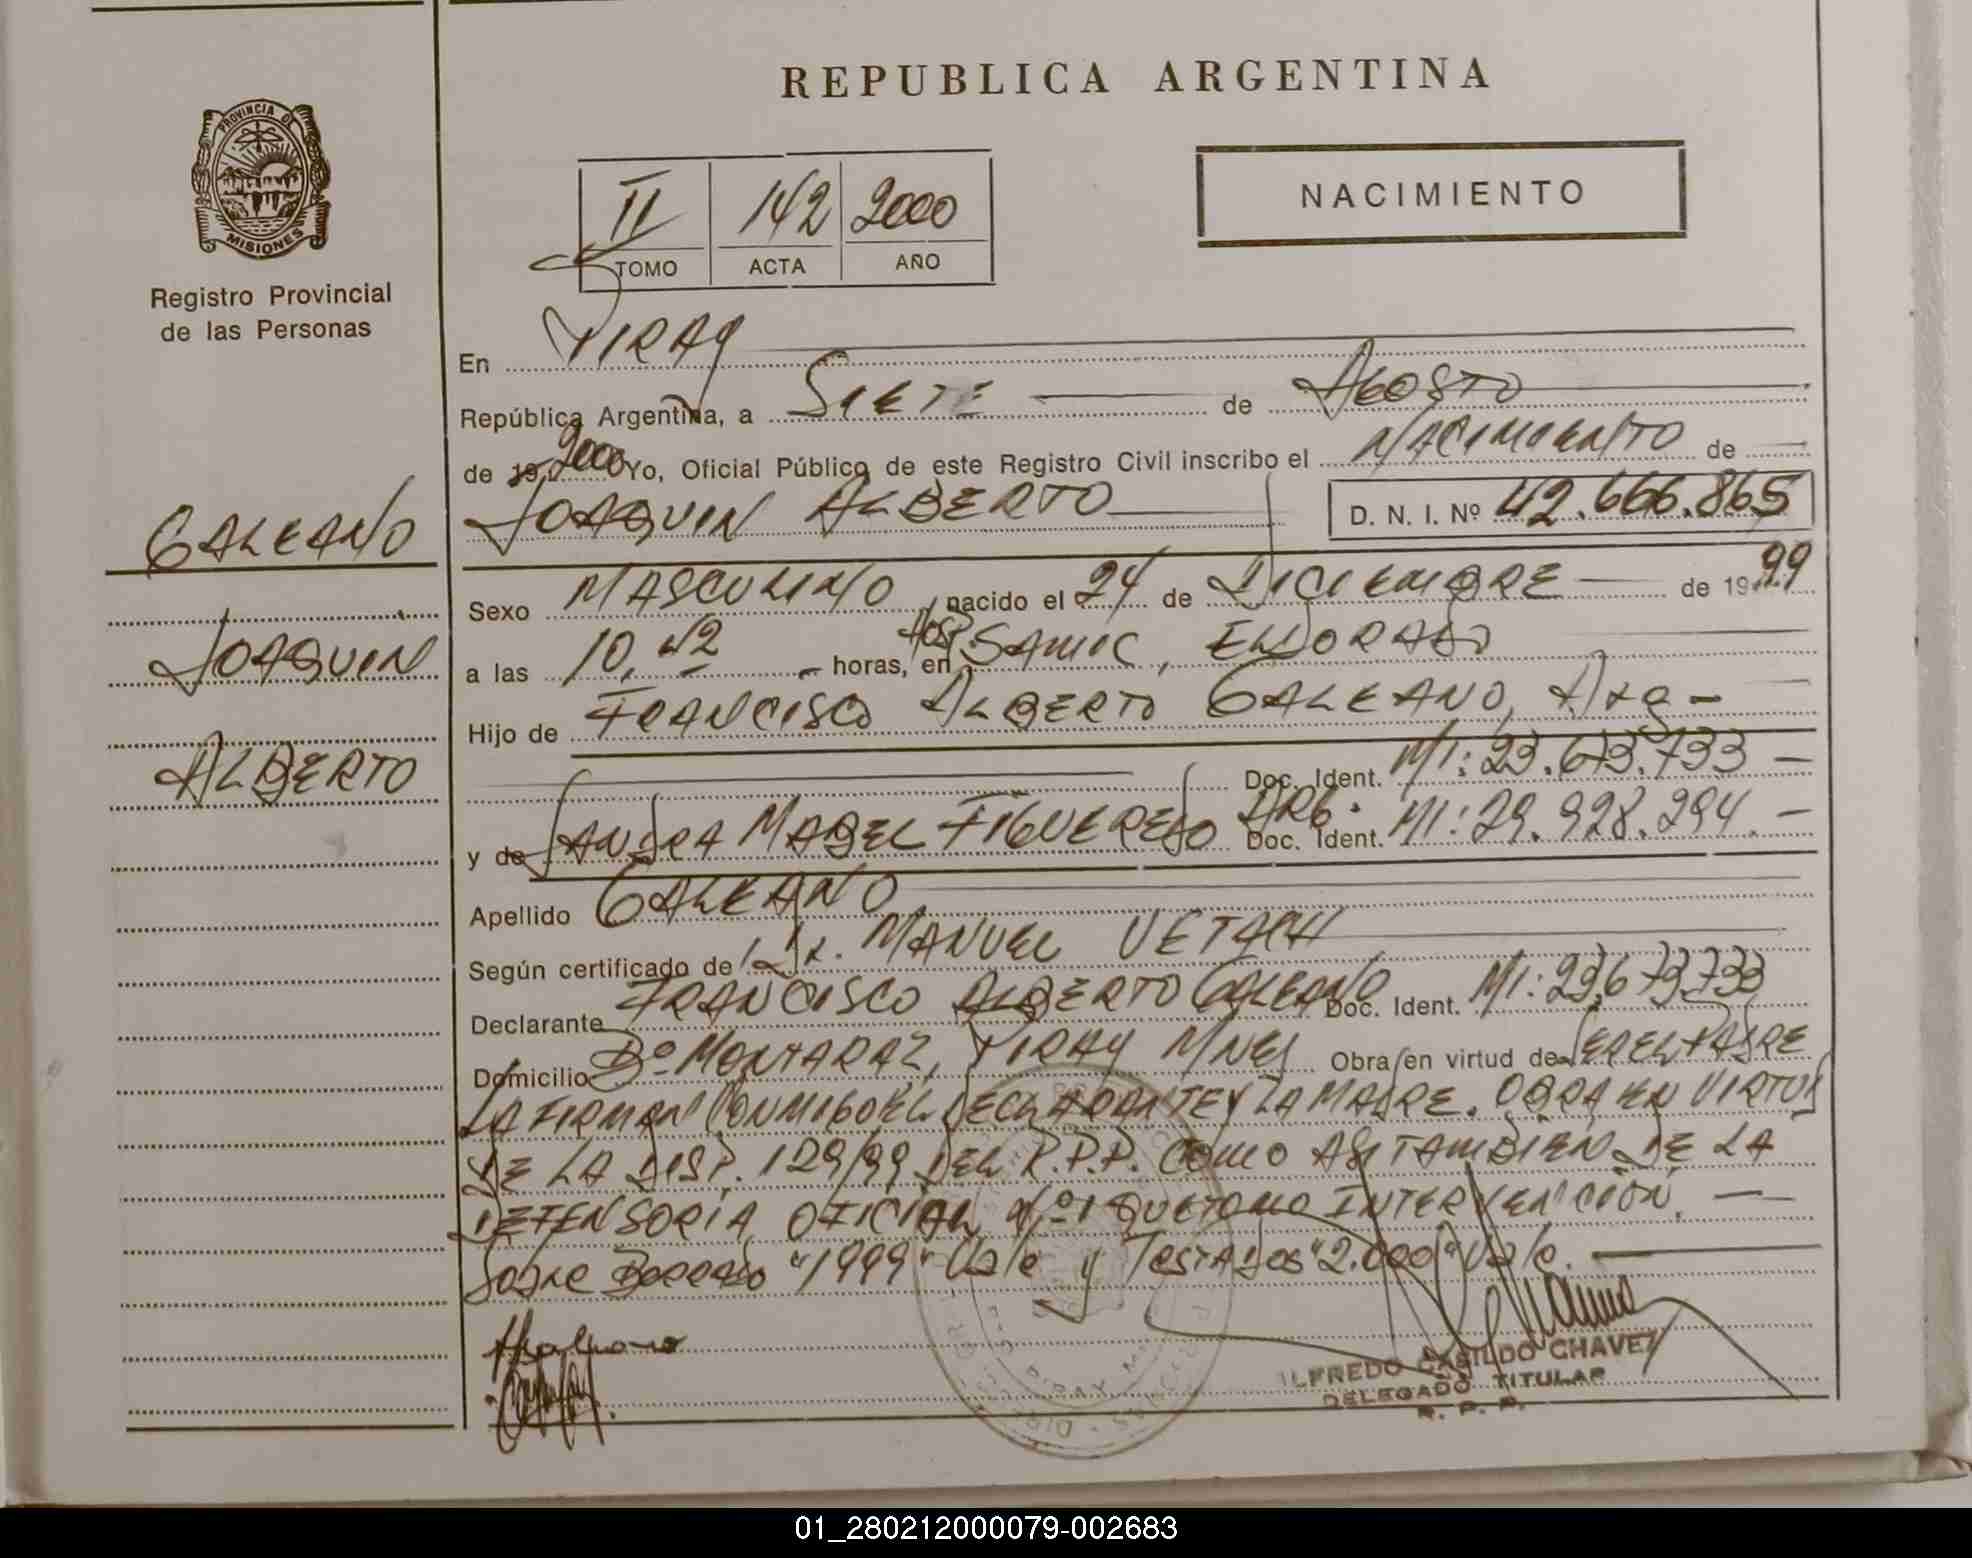 REPUBLICA ARGENTINA
PROVINCIA DE
MISIONES
Registro Provincial
de las Personas
II 142 2000
TOMO ACTA AÑO
NACIMIENTO
En PIRAY
República Argentina, a SIETE de AGOSTO
de 19 2000 Yo, Oficial Público de este Registro Civil inscribo el NACIMIENTO de
JOAQUIN ALBERTO D. N. I. Nº 42.666.865
GALEANO
JOAQUIN
ALBERTO
Sexo MASCULINO nacido el 24 de DICIEMBRE de 1999
a las 10,42 horas, en HOSP. SAMIC, ELDORADO
Hijo de FRANCISCO ALBERTO GALEANO, Arg -
Doc. Ident. MI: 23.673.733 -
y de SANDRA MABEL FIGUEREDO ARG. Doc. Ident. MI: 29.928.294. -
Apellido GALEANO
Según certificado de Dr. MANUEL VETACH
Declarante FRANCISCO ALBERTO GALEANO Doc. Ident. MI: 23.673.733
Domicilio Bº MONTARAZ, PIRAY MNES Obra en virtud de SER EL PADRE
LA FIRMAN CONMIGO EL DECLARANTE Y LA MADRE. OBRA EN VIRTUD
DE LA DISP. 129/99 DEL R.P.P. COMO ASI TAMBIEN DE LA
DEFENSORIA OFICIAL Nº 1 QUE TOMO INTERVENCION. -
Sobre Borrado "1999" Vale y Testados "2.000" Vale.
ALFREDO CASILDO CHAVEZ
DELEGADO TITULAR
R. P. P.
01_280212000079-002683